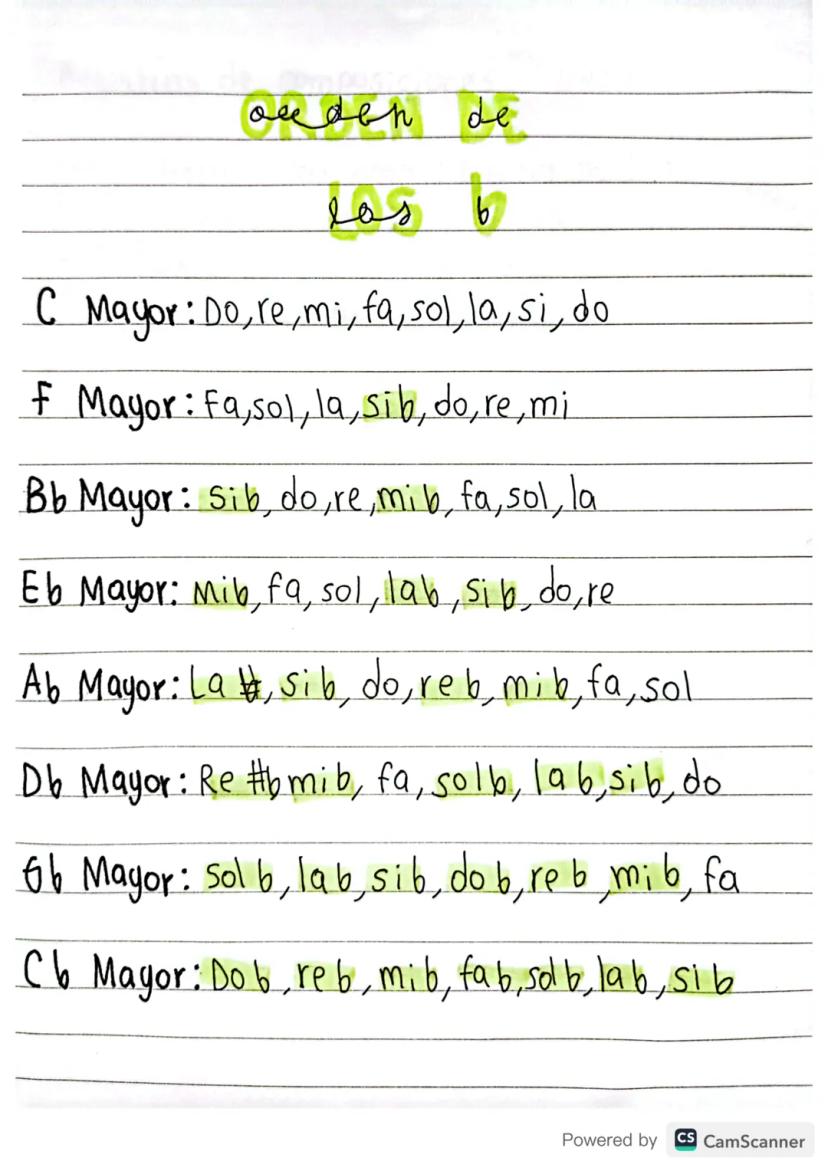 ORDEN DE
orden de
LOS b
los b
C Mayor: Do, re, mi, fa, sol, la, si, do
F Mayor: Fa, sol, la, sib, do, re, mi
Bb Mayor: Sib, do, re, mib, fa, sol, la
Eb Mayor: Mib, fa, sol, lab, sib, do, re
Ab Mayor: La, sib, do, reb, mib, fa, sol
Db Mayor: Re #b mib, fa, solb, lab, sib, do
Gb Mayor: Solb, lab, sib, dob, reb, mib, fa
Cb Mayor: Dob, reb, mib, fab, solb, lab, sib
Powered by CS CamScanner